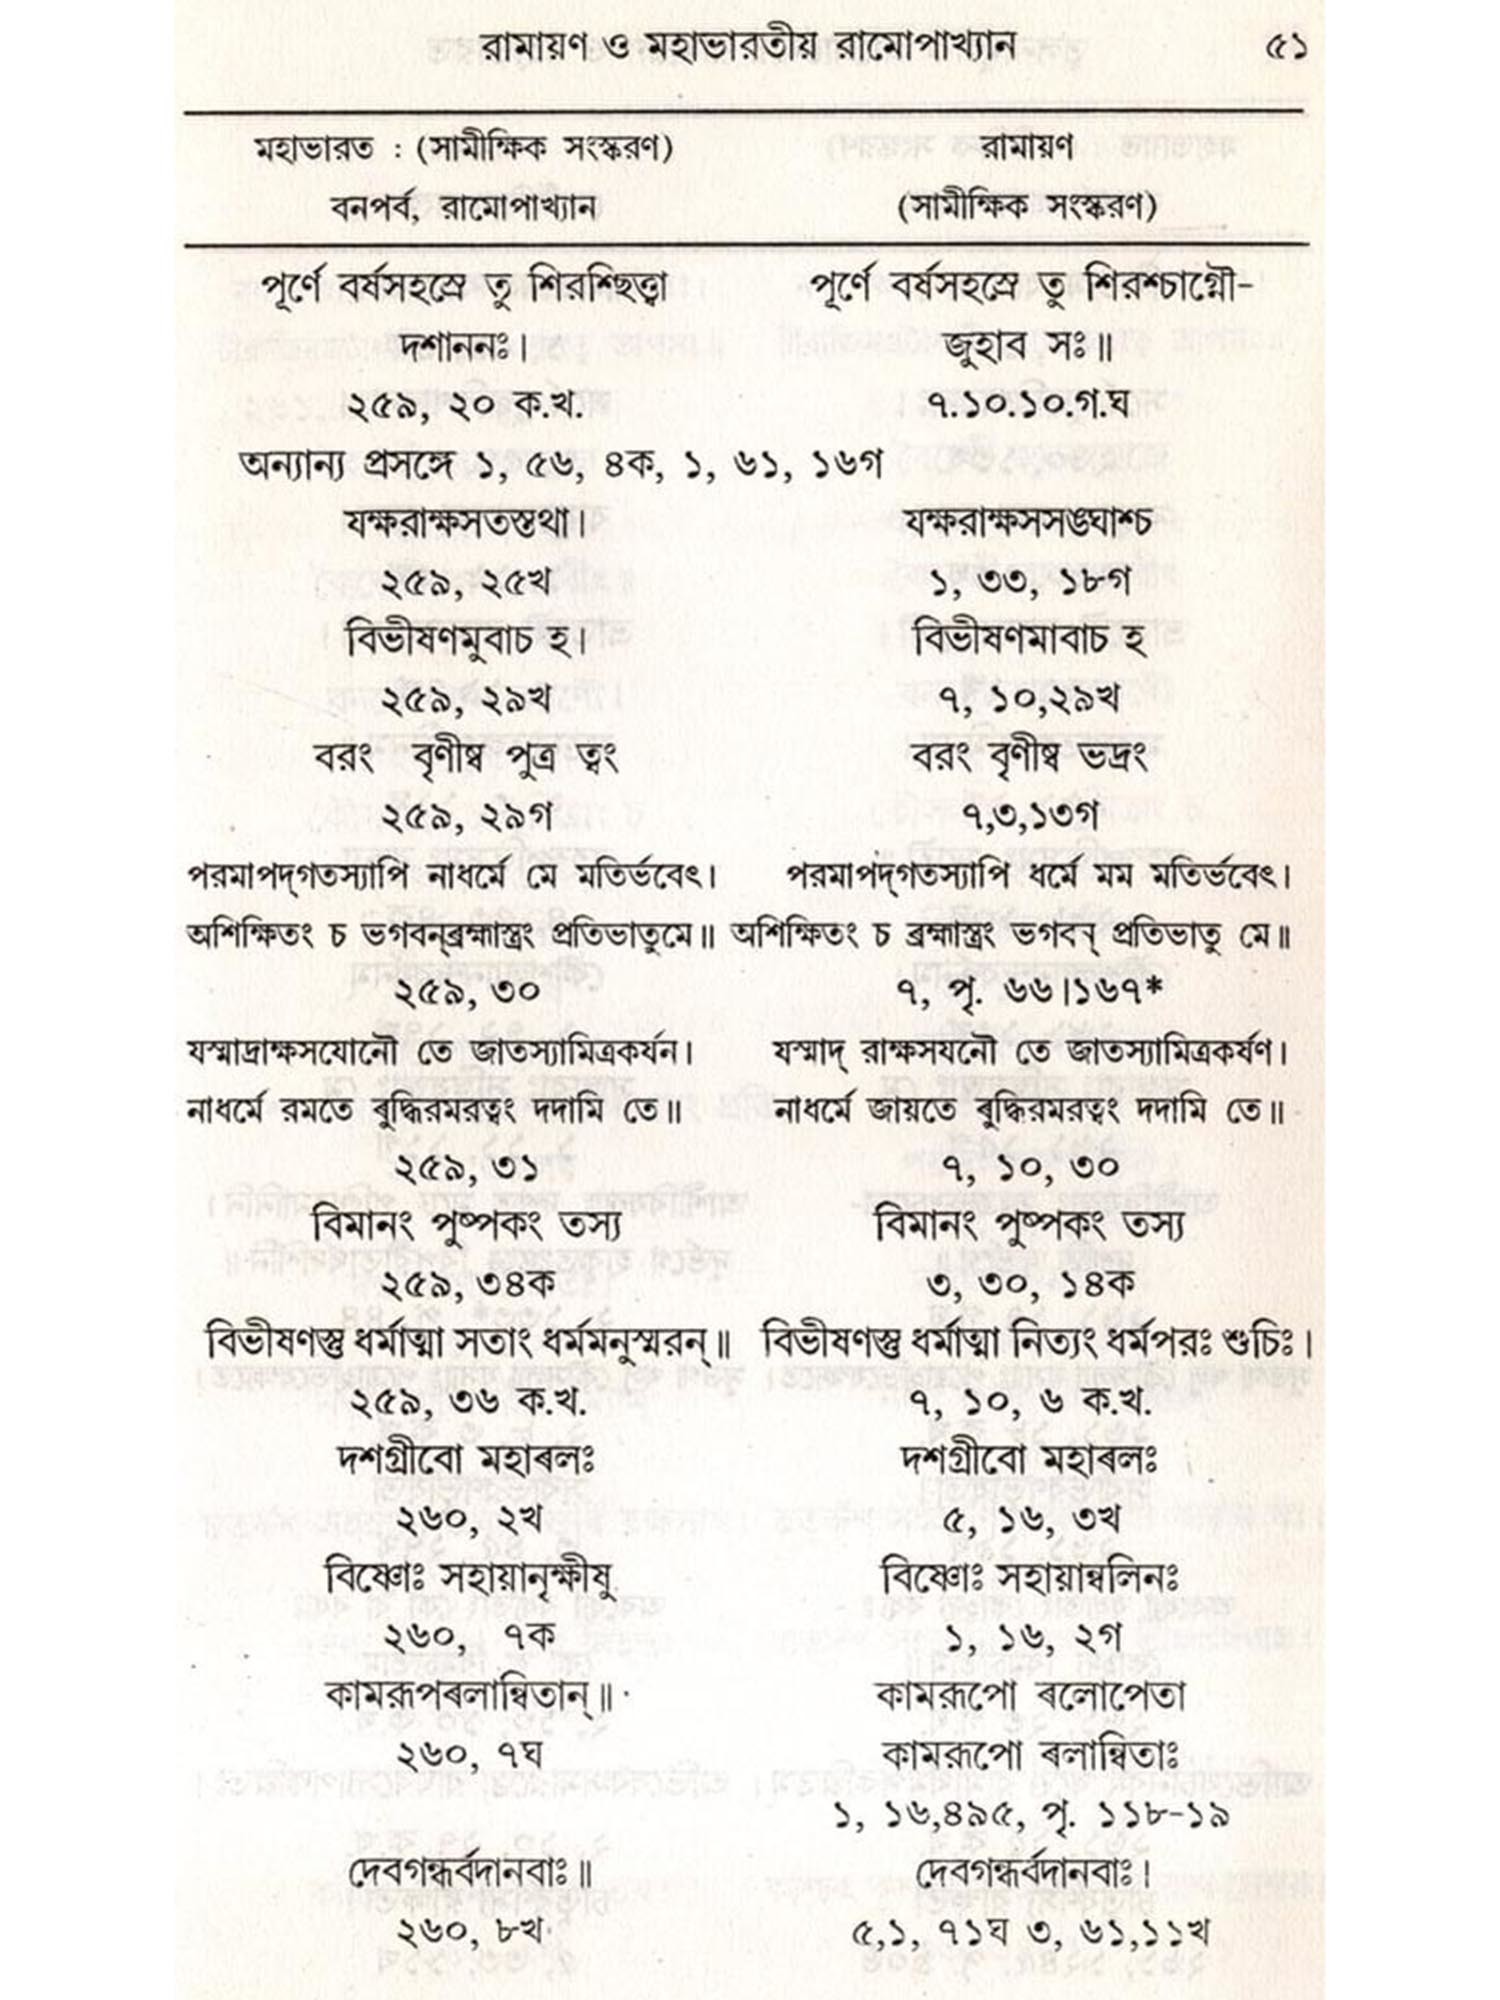 রামায়ণ ও মহাভারতীয় রামোপাখ্যান ৫১
মহাভারত : (সামীক্ষিক সংস্করণ) রামায়ণ
বনপর্ব, রামোপাখ্যান (সামীক্ষিক সংস্করণ)
পূর্ণে বর্ষসহস্রে তু শিরশ্ছিত্ত্বা পূর্ণে বর্ষসহস্রে তু শিরশ্চাগ্নৌ-
দশাননঃ। জুহাব সঃ॥
২৫৯, ২০ ক.খ. ৭.১০.১০.গ.ঘ
অন্যান্য প্রসঙ্গে ১, ৫৬, ৪ক, ১, ৬১, ১৬গ
যক্ষরাক্ষসতস্তথা। যক্ষরাক্ষসসঙ্ঘাশ্চ
২৫৯, ২৫খ ১, ৩৩, ১৮গ
বিভীষণমুবাচ হ। বিভীষণমাবাচ হ
২৫৯, ২৯খ ৭, ১০,২৯খ
বরং বৃণীষ্ব পুত্র ত্বং বরং বৃণীষ্ব ভদ্রং
২৫৯, ২৯গ ৭,৩,১৩গ
পরমাপদ্‌গতস্যাপি নাধর্মে মে মতির্ভবেৎ। পরমাপদ্‌গতস্যাপি ধর্মে মম মতির্ভবেৎ।
অশিক্ষিতং চ ভগবন্‌ব্রহ্মাস্ত্রং প্রতিভাতুমে॥ অশিক্ষিতং চ ব্রহ্মাস্ত্রং ভগবন্ প্রতিভাতু মে॥
২৫৯, ৩০ ৭, পৃ. ৬৬।১৬৭*
যস্মাদ্রাক্ষসযোনৌ তে জাতস্যামিত্রকর্যন। যস্মাদ্ রাক্ষসযনৌ তে জাতস্যামিত্রকর্ষণ।
নাধর্মে রমতে ৰুদ্ধিরমরত্বং দদামি তে॥ নাধর্মে জায়তে ৰুদ্ধিরমরত্বং দদামি তে॥
২৫৯, ৩১ ৭, ১০, ৩০
বিমানং পুষ্পকং তস্য বিমানং পুষ্পকং তস্য
২৫৯, ৩৪ক ৩, ৩০, ১৪ক
বিভীষণস্তু ধর্মাত্মা সতাং ধর্মমনুস্মরন্॥ বিভীষণস্তু ধর্মাত্মা নিত্যং ধর্মপরঃ শুচিঃ।
২৫৯, ৩৬ ক.খ. ৭, ১০, ৬ ক.খ.
দশগ্রীবো মহাৰলঃ দশগ্রীবো মহাৰলঃ
২৬০, ২খ ৫, ১৬, ৩খ
বিষ্ণোঃ সহায়ানৃক্ষীষু বিষ্ণোঃ সহায়ান্বলিনঃ
২৬০, ৭ক ১, ১৬, ২গ
কামরূপৰলান্বিতান্॥ কামরূপো ৰলোপেতা
২৬০, ৭ঘ কামরূপো ৰলান্বিতাঃ
১, ১৬,৪৯৫, পৃ. ১১৮-১৯
দেবগন্ধর্বদানবাঃ॥ দেবগন্ধর্বদানবাঃ।
২৬০, ৮খ ৫,১, ৭১ঘ ৩, ৬১,১১খ